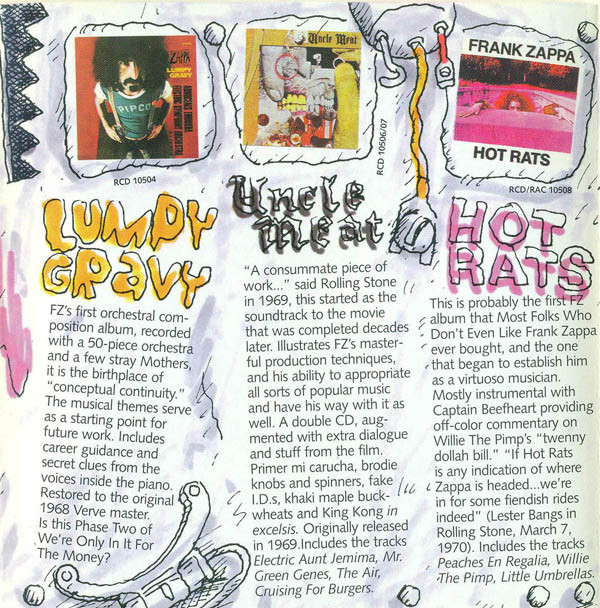 ZAPPA
LUMPY
GRAVY
PIPCO
RCD 10504
LUMPY
GRAVY
FZ's first orchestral com-
position album, recorded
with a 50-piece orchestra
and a few stray Mothers,
it is the birthplace of
"conceptual continuity."
The musical themes serve
as a starting point for
future work. Includes
career guidance and
secret clues from the
voices inside the piano.
Restored to the original
1968 Verve master.
Is this Phase Two of
We're Only In It For
The Money?
Uncle Meat
RCD 10506/07
Uncle
Meat
"A consummate piece of
work..." said Rolling Stone
in 1969, this started as the
soundtrack to the movie
that was completed decades
later. Illustrates FZ's master-
ful production techniques,
and his ability to appropriate
all sorts of popular music
and have his way with it as
well. A double CD, aug-
mented with extra dialogue
and stuff from the film.
Primer mi carucha, brodie
knobs and spinners, fake
I.D.s, khaki maple buck-
wheats and King Kong in
excelsis. Originally released
in 1969.Includes the tracks
Electric Aunt Jemima, Mr.
Green Genes, The Air,
Cruising For Burgers.
FRANK ZAPPA
HOT RATS
RCD/RAC 10508
HOT
RATS
This is probably the first FZ
album that Most Folks Who
Don't Even Like Frank Zappa
ever bought, and the one
that began to establish him
as a virtuoso musician.
Mostly instrumental with
Captain Beefheart providing
off-color commentary on
Willie The Pimp's "twenny
dollah bill." "If Hot Rats
is any indication of where
Zappa is headed...we're
in for some fiendish rides
indeed" (Lester Bangs in
Rolling Stone, March 7,
1970). Includes the tracks
Peaches En Regalia, Willie
The Pimp, Little Umbrellas.